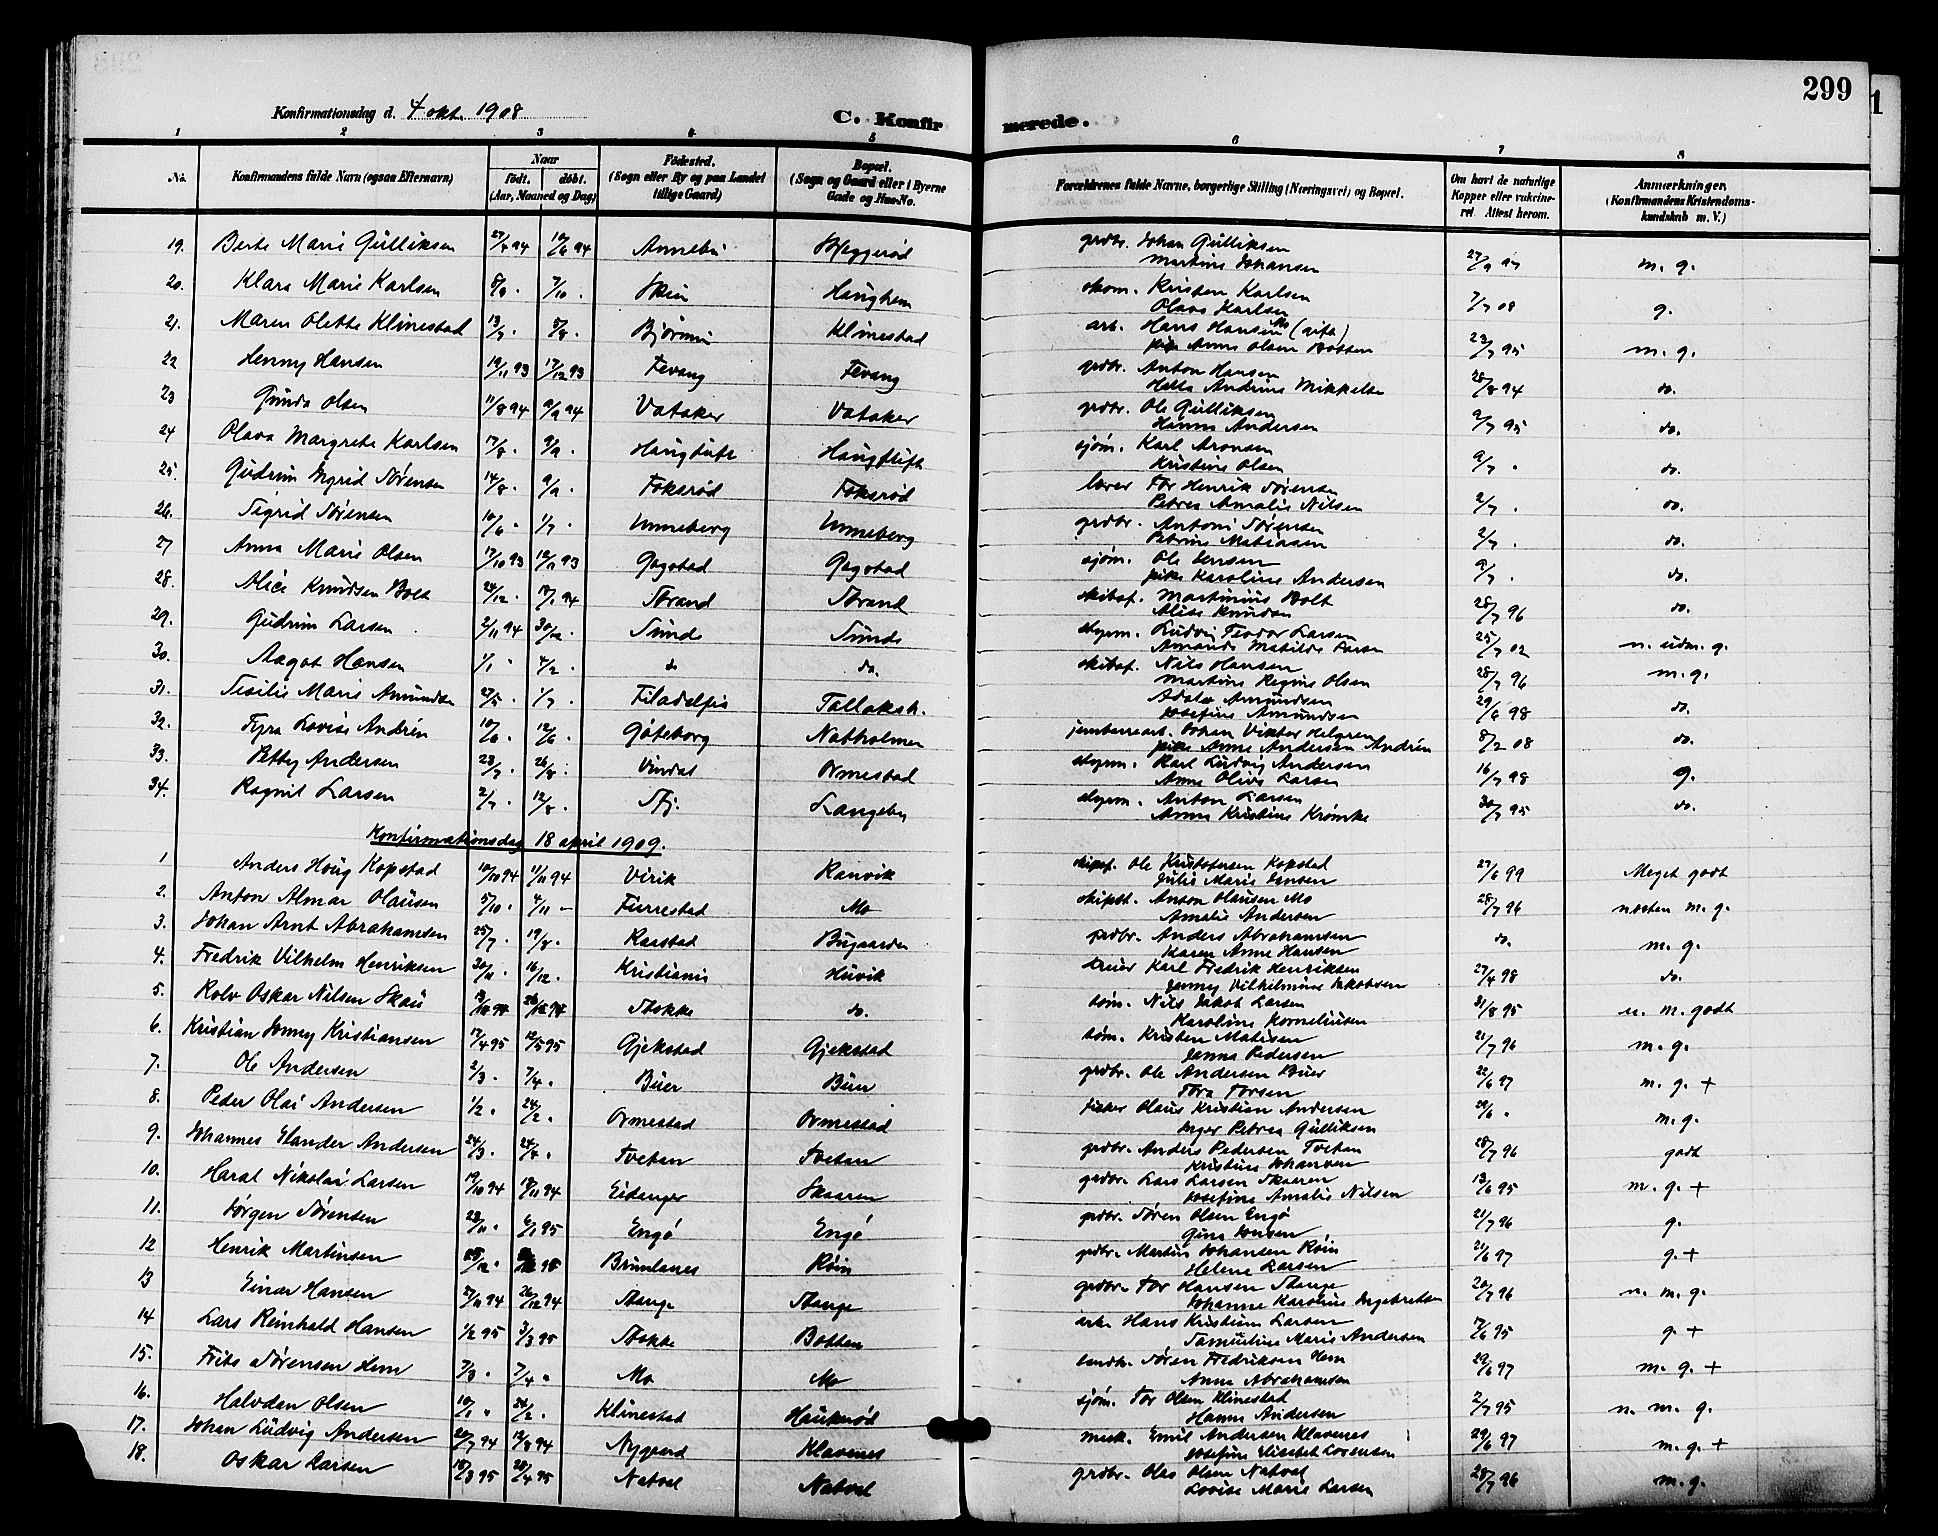 299
Konfirmationsdag d. 4 okt. 1908
C. Konfirmerede.
1 2 3 4 5 6 7 8
No. Konfirmandens fulde Navn (ogsaa Efternavn) Naar födt. döbt. (Aar, Maaned og Dag) Födested. (Sogn eller By og paa Landet tillige Gaard) Bopæl. (Sogn og Gaard eller i Byerne Gade og Hus-No. Forældrenes fulde Navne, borgerlige Stilling (Næringsvei) og Bopæl. Om havt de naturlige Kopper eller vakcineret. Attest herom. Anmærkninger. (Konfirmandens Kristendomskundskab m. V.)
19. Berte Marie Gulliksen 27/4 94 Annebu Bjeggerød grdbr. Johan Gulliksen m. g.
Martine Johansen
20. Klara Marie Karlsen 7/10 . Skin Haughem skom. Kristen Karlsen 7/7 08 g.
Olava Karlsen
21. Maren Olette Klinestad 13/7 . 5/8 . Bjørnum Klinestad arb. Hans Hansen (gift) 23/7 95 m. g.
pike Anne Olsen Botten
22 Henny Hansen 19/11 93 17/12 93 Fevang Fevang grdbr. Anton Hansen 28/8 94 do.
Hella Andrine Mikkelse
23 Gunda Olsen 11/8 94 9/9 94 Vataker Vataker grdbr. Ole Gulliksen 9/7 95 do.
Hanna Andersen
24 Olava Margrete Karlsen 17/8 . 9/9 . Haugtuft Haugtuft sjøm. Karl Aronsen 9/7 . do.
Kristine Olsen
25. Gudrun Ingrid Sørensen 14/8 . 9/9 . Fokserød Fokserød lærer Tor Henrik Sørensen 2/7 . do.
Petrea Amalie Nilsen
26. Sigrid Sørensen 10/6 . 1/7 . Unneberg Unneberg grdbr. Antoni Sørensen 2/7 . do.
Petrine Matiasen
27 Anna Marie Olsen 17/10 93 19/11 93 Gogstad Gogstad sjøm. Ole Jensen 9/7 . do.
pike Karoline Andersen
28. Alice Knudsen Bolt 24/12 . Strand Strand skibsf. Martinius Bolt 28/7 96 do.
Alise Knudsen
29. Gudrun Larsen 2/11 94 30/12 . Sunde Sunde styrm. Ludvig Teodor Larsen 25/7 02 n. udm. g.
Amanda Matilde Larsen
30. Aagot Hansen 1/1 . 4/2 . do do. skibsf. Nils Hansen 28/7 96 m. g.
Martine Regine Olsen
31. Sesilie Marie Amundsen 27/5 . 1/7 . Filadelfia Tallaksh. Adolf Amundsen 29/6 98 do.
Josefine Amundsen
32. Fyra Lovise Andrén 10/6 . 12/6 . Göteborg Natholmen jernbanearb. Johan Viktor Helgren 8/2 08 do.
pike Anna Andersen Andrén
33. Petty Andersen 23/7 . 26/8 . Vindal Ormestad styrm. Karl Ludvig Andersen 16/7 98 g.
Anna Olivia Larsen
34. Ragnil Larsen 2/7 . 12/8 . Sfj. Langeby styrm. Anton Larsen 30/7 95 do.
Anna Kristine Krømke
Konfirmationsdag 18 april 1909.
1 Anders Houg Kopstad 10/10 94 11/11 94 Virik Ranvik skipsf. Ole Kristofersen Kopstad 27/6 99 Meget godt
Julie Marie Jensen
2. Anton Almar Olausen 5/10 . 4/11 - Furrestad Mo skipst. Anton Olausen Mo 28/7 96 næsten m. g.
Amalie Andersen
3. Johan Arnt Abrahamsen 25/7 . 19/8 . Raastad Bugaarden grdbr. Anders Abrahamsen do. m. g.
Karen Anne Hansen
4. Fredrik Vilhelm Henriksen 30/11 . 16/12 . Kristiania Huvik Karl Fredrik Henriksen 27/4 98 do.
Jenny Vilhelmine Jakobsen
5. Rolv Oskar Nilsen Skau 26/12 94 Stokke do. tøm. Nils Jakob Larsen 31/8 95 n. m. godt
Karoline Korneliusen
6. Kristian Jonny Kristiansen 17/4 95 12/5 95 Gjekstad Gjekstad tøm. Kristen Matisen 21/7 96 m. g.
Janna Pedersen
7. Ole Andersen 2/3 . 7/4 . Buer Buer grdbr. Ole Andersen Buer 22/6 97 m. g. +
Tora Torsen
8. Peder Olai Andersen 1/2 . 24/2 . Ormestad Ormestad fisker Olaus Kristian Andersen 29/6 . m. g.
Inger Petrea Gulliksen
9. Johannes Elander Andersen 24/3 . Tveten Tveten grdbr. Anders Pedersen Tveten 28/7 96 godt
Kristine Johansen
10. Haral Nikolai Larsen 19/10 94 18/11 94 Eidanger Skaaren grdbr. Lars Larsen Skaaren 13/6 95 m. g. +
Josefine Amalie Nilsen
11. Jørgen Sørensen 23/11 . 6/1 95 Engø Engø grdbr. Søren Olsen Engø 21/7 96 g.
Gina Jensen
12 Henrik Martinsen Brunlanes Røin grdbr. Martin Johansen Røin 21/6 97 g. +
Helene Larsen
13 Einar Hansen 27/11 94 26/12 94 Stange Stange grdbr. Tor Hansen Stange 20/7 96 n. m. g.
Johanne Karoline Ingebretsen
14 Lars Reinhald Hansen 1/2 95 3/3 95 Stokke Botten arb. Hans Kristian Larsen 17/6 95 g +
Samuline Marie Andersen
15. Frits Sørensen Hem 7/3 . 7/4 . Mo Mo landh. Søren Fredriksen Hem 29/6 97 m. g. +
Anna Abrahamsen
16. Halvdan Olsen 10/1 . 24/2 . Klinestad Haukerød sjøm. Tor Olsen Klinestad 2/7 95 n. m. g.
Hanna Andersen
17. Johan Ludvig Andersen 20/7 94 12/8 94 Nygaard Klavenes mask. Emil Andersen Klavenes 29/6 97 m. g. +
Josefine Elisabet Lorensen
18. Oskar Larsen 18/3 95 28/4 95 Natvel Natvel grdbr. Olaf Olsen Natvel 28/7 96 m. g.
Lovise Marie Larsen